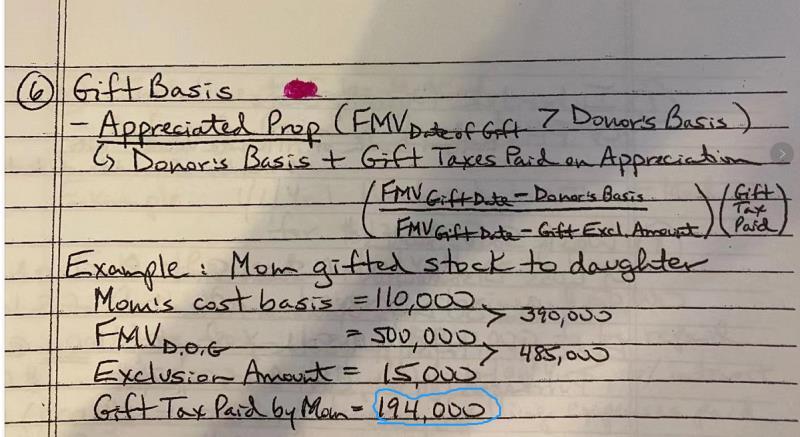 ⑥ Gift Basis
- Appreciated Prop (FMV Date of Gift > Donor's Basis)
↳ Donor's Basis + Gift Taxes Paid on Appreciation
(FMV Gift Date - Donor's Basis / FMV Gift Date - Gift Excl. Amount) (Gift Tax Paid)
Example: Mom gifted stock to daughter
Mom's cost basis = 110,000
> 390,000
FMV D.O.G = 500,000
> 485,000
Exclusion Amount = 15,000
Gift Tax Paid by Mom = 194,000